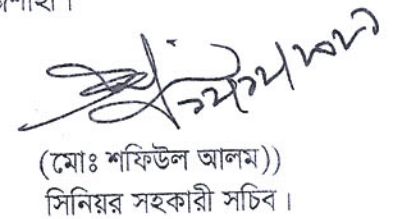 (মোঃ শফিউল আলম))
সিনিয়র সহকারী সচিব।